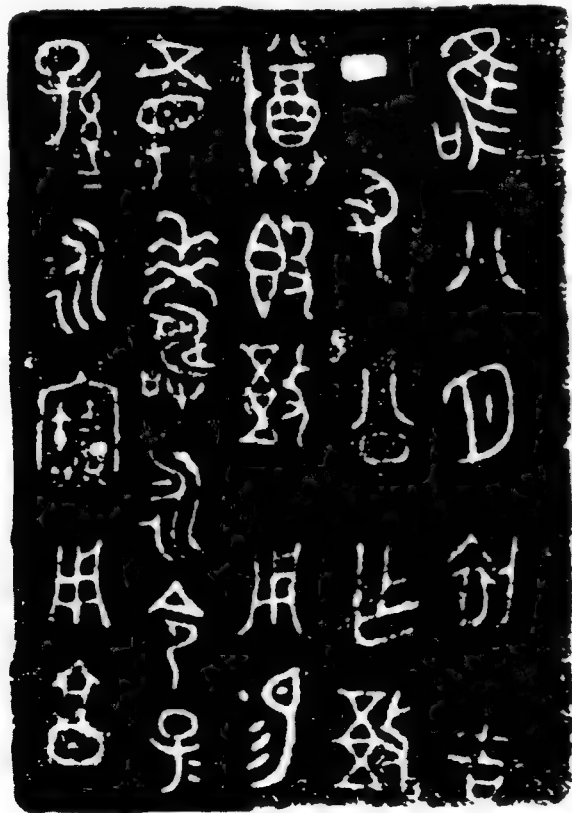 唯八月初吉
丁亥公乍敔
尊簋敔用易
眉壽永令子
孫永寶用享